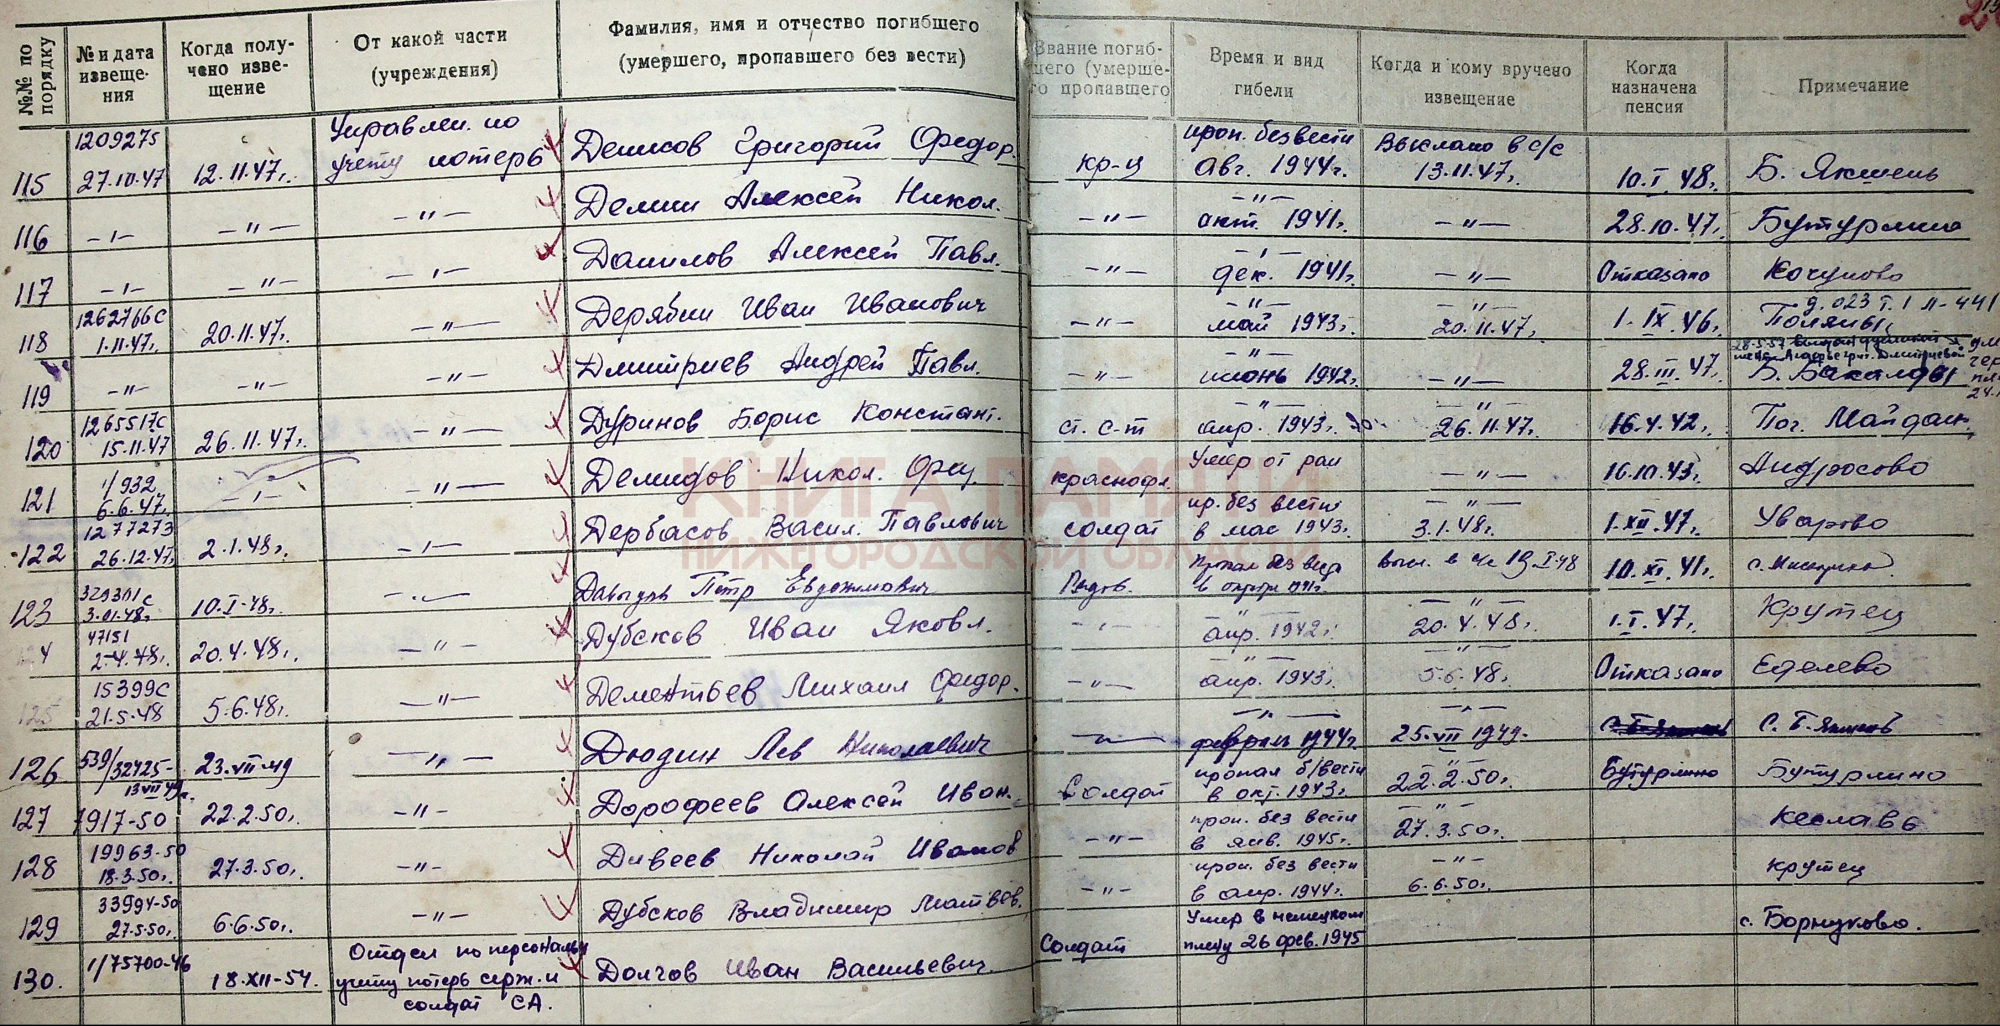 №№ по порядку
№ и дата извеще-ния
Когда полу-чено изве-щение
От какой части (учреждения)
Фамилия, имя и отчество погибшего (умершего, пропавшего без вести)
Звание погиб-шего (умерше-го пропавшего
Время и вид гибели
Когда и кому вручено извещение
Когда назначена пенсия
Примечание
115 1209275 27.10.47 12.11.47г. Управлен. по учету потерь Денисов Григорий Федор. кр-ц проп. без вести авг. 1944г. Выслано в с/с 13.11.47г. 10.I.48г. Б. Якшень
116 -"- -"- -"- Демин Алексей Никол. -"- -"- окт. 1941г. -"- 28.10.47г. Бутурлино
117 -"- -"- -"- Данилов Алексей Павл. -"- -"- дек. 1941г. -"- Отказано Кочуново
118 1262766с 1.11.47г. 20.11.47г. -"- Дерябин Иван Иванович -"- -"- май 1943г. -"- 20.11.47г. 1.IX.46г. д. 023 т. 1 л-441 Поляны
119 -"- -"- -"- Дмитриев Андрей Павл. -"- -"- июнь 1942г. -"- 28.III.47г. Б. Бакалды
120 1265517с 15.11.47 26.11.47г. -"- Дуринов Борис Констант. ст. с-т -"- апр. 1943г. -"- 26.11.47г. 16.4.42г. Пог. Майдан
121 1/932 6.6.47г. -"- -"- Демидов Никол. краснофл. Умер от ран -"- 16.10.43г. Андросово
122 1277273 26.12.47г. 2.1.48г. -"- Дербасов Васил. Павлович солдат пр. без вести в мае 1943г. -"- 3.1.48г. 1.XII.47г. Уварово
123 329301с 3.01.48г. 10.I.48г. Петр Евдокимович Рядов. 10.XI.41г.
47151 2.4.48г. 20.4.48г. -"- Дубсков Иван Яковл. -"- -"- апр. 1942г. -"- 20.4.48г. 1.I.47г. Крутец
125 15399с 21.5.48 5.6.48г. -"- Дементьев Михаил Федор. -"- -"- апр. 1943г. -"- 5.6.48г. Отказано Еделево
126 539/32425- 13 VII 49г. 23.VII 49 -"- Дюдин Лев Николаевич -"- -"- февраль 1944г. -"- 25.VII 1949.
127 7917-50 22.2.50г. -"- Дорофеев Алексей Иван. Солдат пропал б/вести в окт. 1943г. -"- 22.2.50г. Бутурлино Бутурлино
128 19963-50 18.3.50г. 27.3.50г. -"- Дивеев Николай Иванов -"- проп. без вести в янв. 1945г. -"- 27.3.50г.
129 33994-50 27.5.50г. 6.6.50г. -"- Дубсков Владимир Матвев. -"- проп. без вести в апр. 1944г. -"- 6.6.50г. Крутец
130. 1/75700-46 18.XII-54. Отдел по персональн учету потерь серж. и солдат СА. Долгов Иван Васильевич. Солдат Умер в немецком плену 26 фев. 1945 с. Борнуково.
КНИГА ПАМЯТИ
НИЖЕГОРОДСКОЙ ОБЛАСТИ